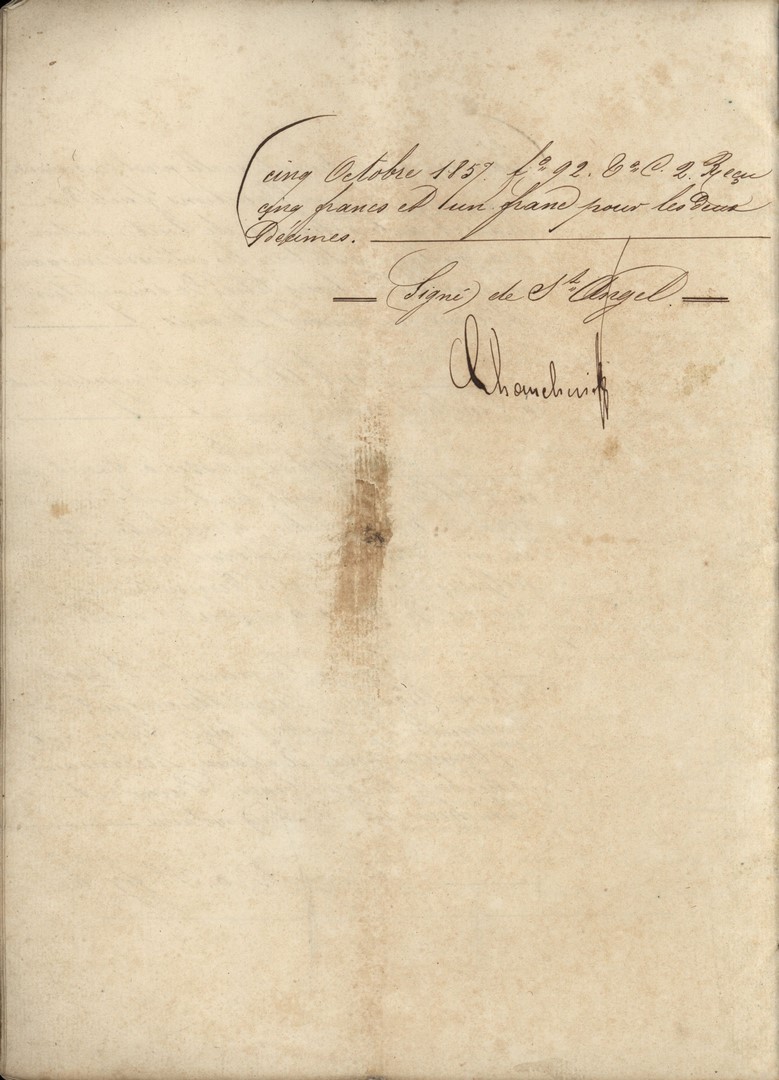 cinq Octobre 1857. f.º 92. V.º C. 2. Reçu
cinq francs et un franc pour les deux
Décimes.
(Signé) de S.t Angel.